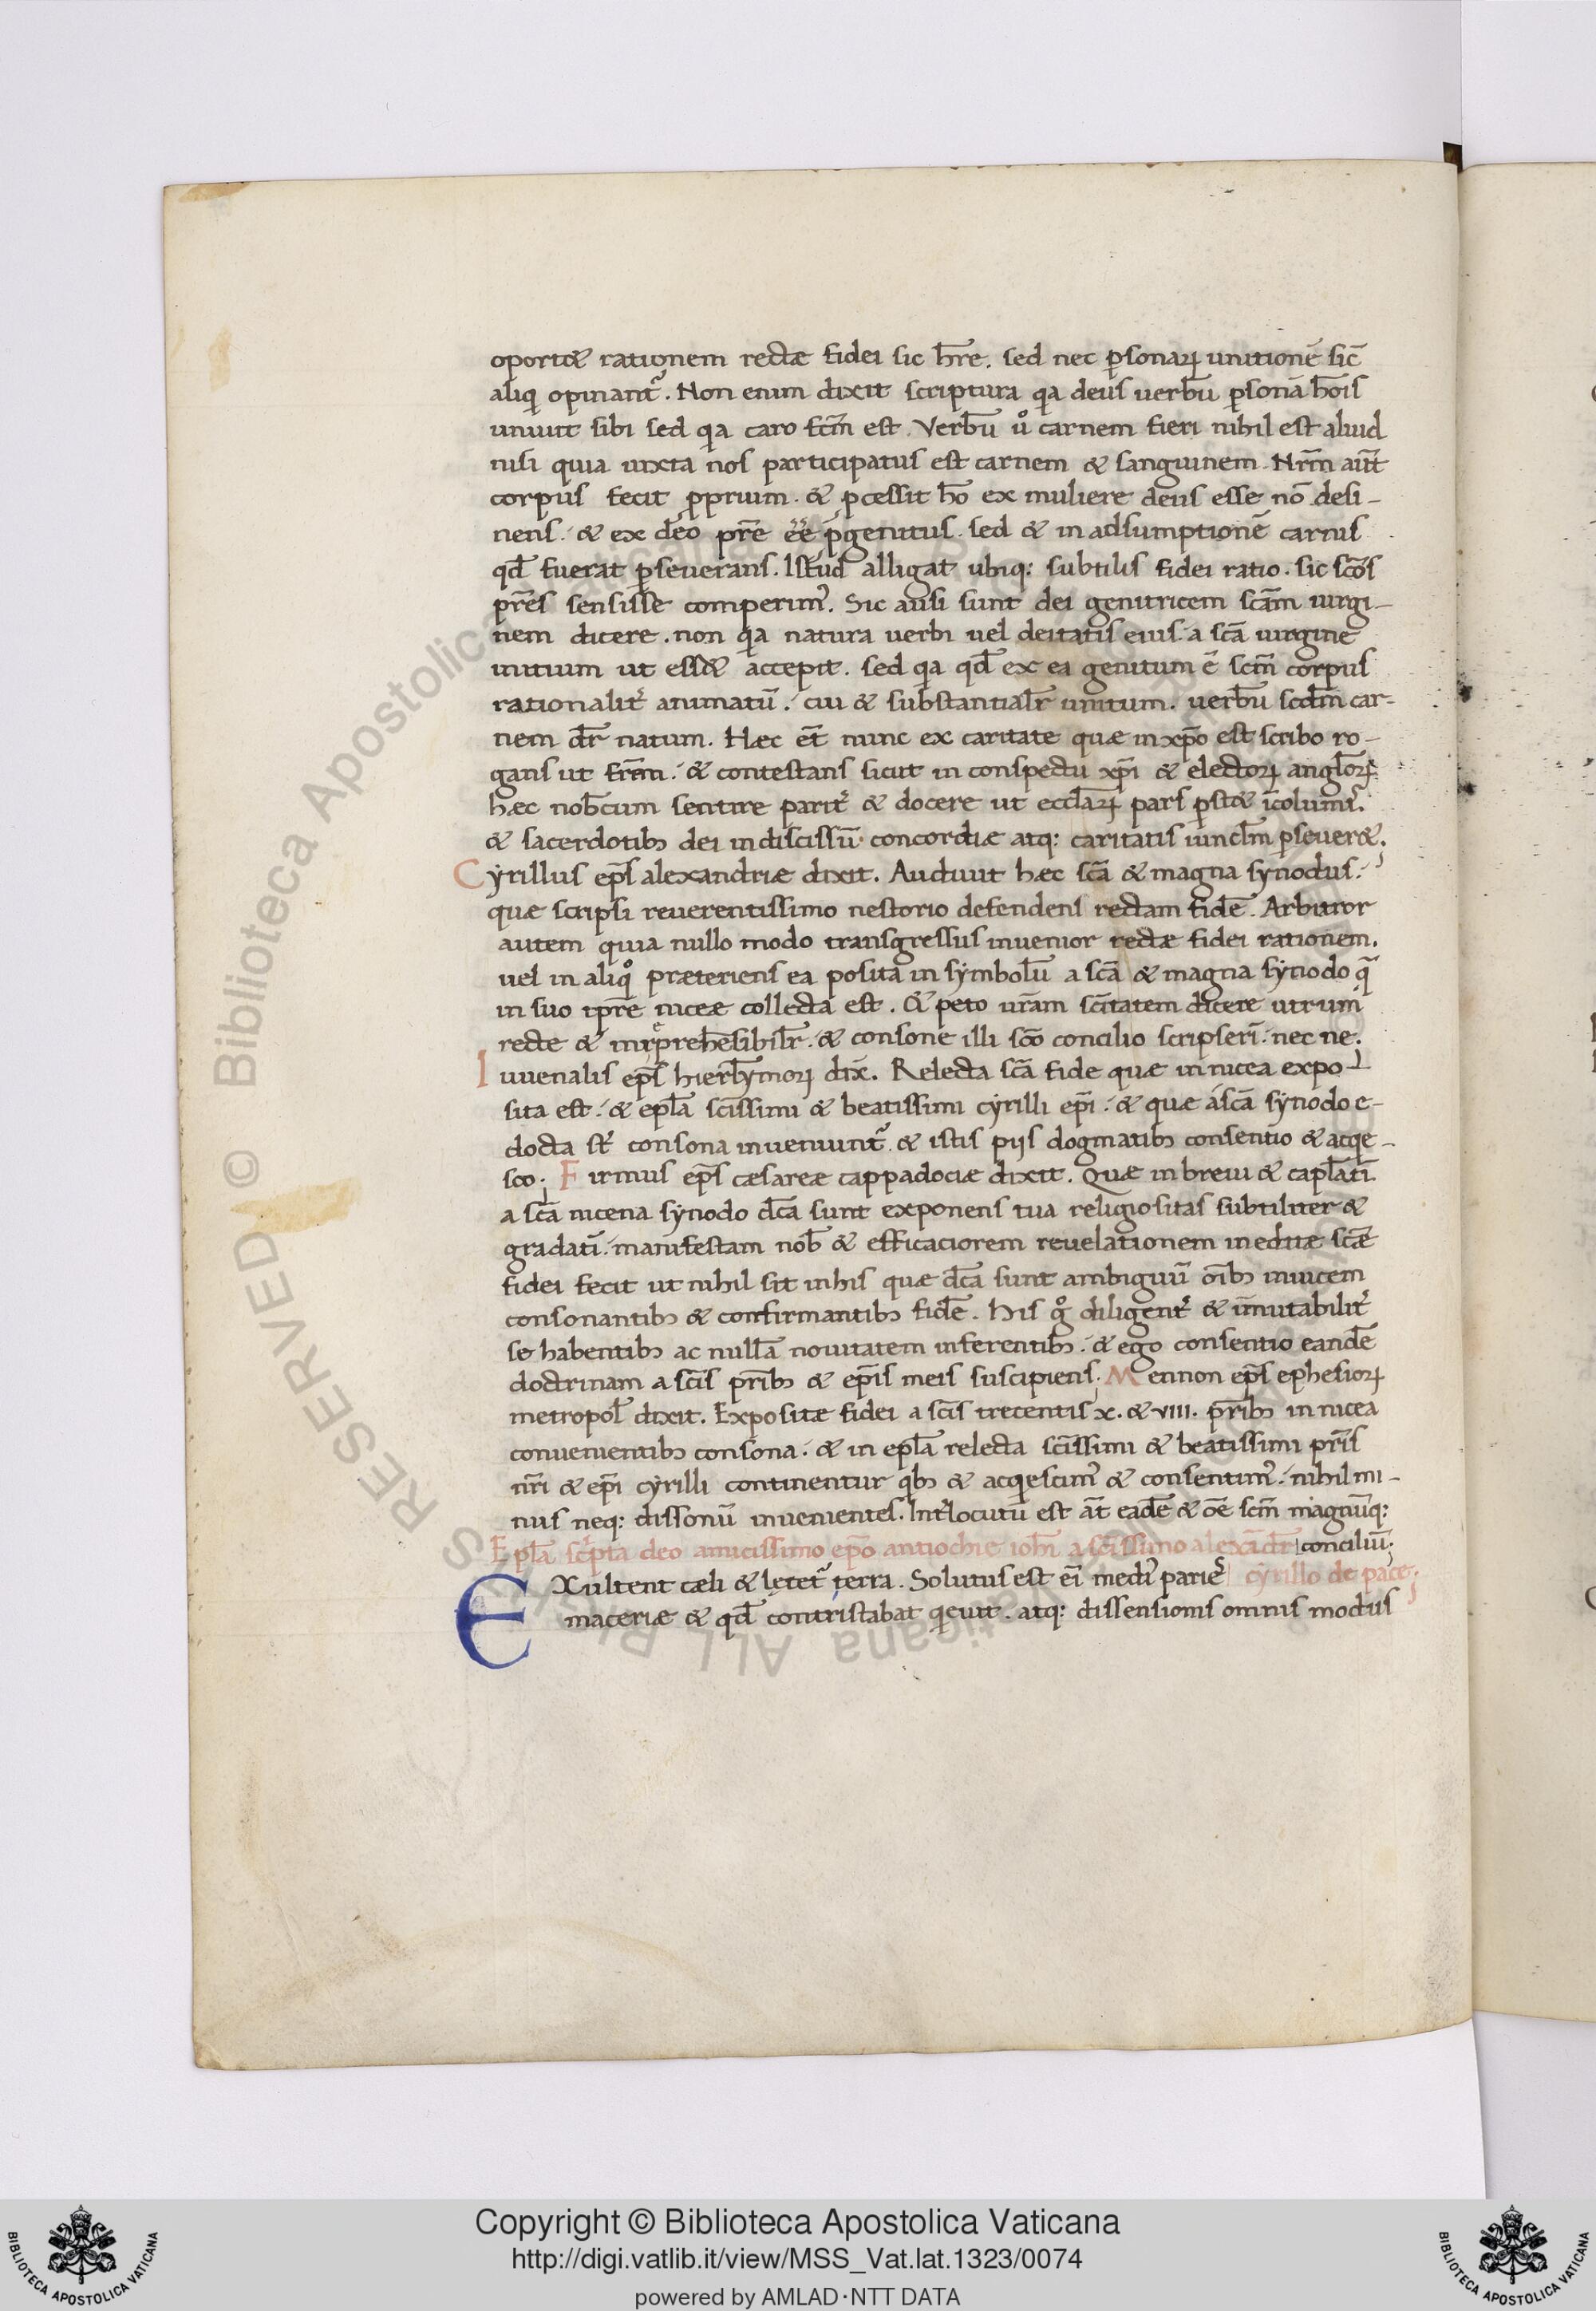 oportet rationem rectæ fidei sic hr̄e. sed nec ꝑsonaꝝ unitionē sic̄
aliqi opinant̉. Non enim dixit scriptura qia deus uerbū ꝑsonā hōis
uniuit sibi sed qia caro fc̄m est. Verbū ů carnem fieri nihil est aliud
nisi quia iuxta nos participatus est carnem & sanguinem. Nr̄m aūt
corpus fecit ꝓprium. & ꝓcessit hō ex muliere deus esse nō desi-
nens. & ex deo pr̄e eē p̄genitus. sed & in adsumptionē carnis
qd̄ fuerat ꝑseuerans. Istud alligat ubiq: subtilis fidei ratio. sic scōs
pr̄es sensisse comperim̉. Sic ausi sunt dei genitricem scām uirgi-
nem dicere. non qia natura uerbi uel deitatis eius. a scā uirgine
initium ut esset accepit. sed qia qd̄ ex ea genitum ē scm̄ corpus
rationalit̉ animatū. cui & substantialr̄ unitum. uerbū scdm̄ car-
nem dr̄ natum. Hæc et̄ nunc ex caritate quæ in xp̄o est scribo ro-
gans ut fr̄m. & contestans sicut in conspectu xp̄i & electoꝝ angl̄oꝝ
hæc nob̄cum sentire parit̉ & docere ut eccl̄aꝝ pars ꝑstet īcolumis.
& sacerdotibꝫ dei indiscissū concordiæ atq: caritatis uincl̄m ꝑseueret.
Cyrillus ep̄s alexandriæ dixit. Audiuit hæc scā & magna synodus.
quæ scripsi reuerentissimo nestorio defendens rectam fidē. Arbitror
autem quia nullo modo transgressus inuenior rectæ fidei rationem.
uel in aliqͦ præteriens ea posita in symbolū a scā & magna synodo q̄
in suo tp̄re niceæ collecta est. & peto ur̄am sc̄itatem dicere utrum
recte & inrep̄rehēsibilr̄. & consone illi scō concilio scripserī. nec ne.
Iuuenalis ep̄s hierl̄ymoꝝ dix̄. Relecta scā fide quæ in nicea expo-
sita est. & epl̄a scīssimi & beatissimi cyrilli ep̄i. & quæ a scā synodo e-
docta st̄ consona inueniunt̉ & istis pijs dogmatibꝫ consentio & acqie-
sco. Firmus ep̄s cæsareæ cappadociæ dixit. Quæ in breui & capl̄atī
a scā nicena synodo dc̄a sunt exponens tua religiositas subtiliter &
gradatī. manifestam nob̄ & efficaciorem reuelationem ineditæ scǣ
fidei fecit ut nihil sit in his quæ dc̄a sunt ambiguū oībꝫ inuicem
consonantibꝫ & confirmantibꝫ fidē. His gͦ diligent̉ & īmutabilit̉
se habentibꝫ ac nullā nouitatem inferentibꝫ. & ego consentio eandē
doctrinam a scīs pr̄ibꝫ & ep̄is meis suscipiens. Mennon ep̄s ephesioꝝ
metropol̄ dixit. Expositæ fidei a scīs trecentis x. & viii. pr̄ibꝫ in nicea
conuenientibꝫ consona. & in epl̄a relecta scīssimi & beatissimi pr̄is
nr̄i & ep̄i cyrilli continentur qibꝫ & acqiescim̉ & consentim̉. nihil mi-
nus neq: dissonū inuenientes. Int̉locutū est at̄ eadē & oē scm̄ magnūq:
Epl̄a sc̉pta deo amicissimo ep̄o antiochie ioh̄i a scīssimo alexādr̄ concilīu.
EXultent cæli & lętet̉ terra. Solutus est eī medỉ parie̾s cyrillo de pace.
maceriæ & qd̄ contristabat qieuit. atq: dissensionis omnis modus
Copyright © Biblioteca Apostolica Vaticana
http://digi.vatlib.it/view/MSS_Vat.lat.1323/0074
powered by AMLAD·NTT DATA
BIBLIOTECA APOSTOLICA VATICANA
BIBLIOTECA APOSTOLICA VATICANA